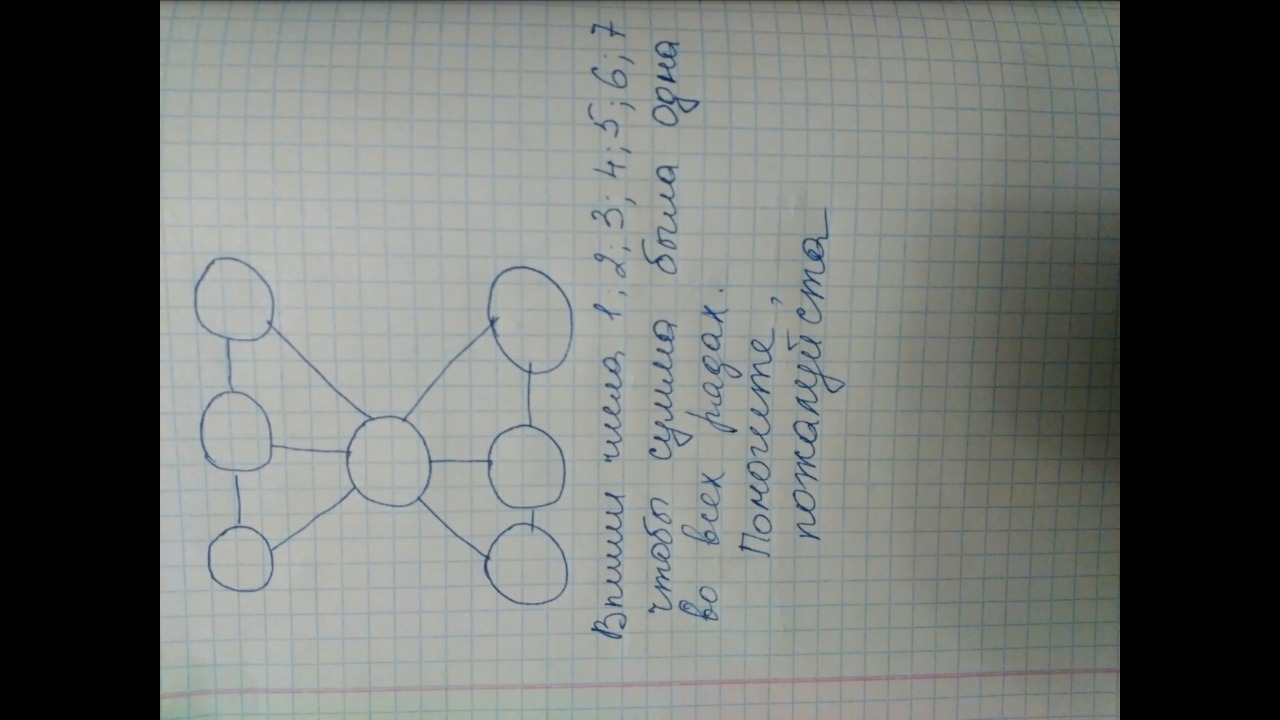 Впиши числа 1; 2; 3; 4; 5; 6; 7
чтобы сумма была одна
во всех рядах.
Помогите,
пожалуйста